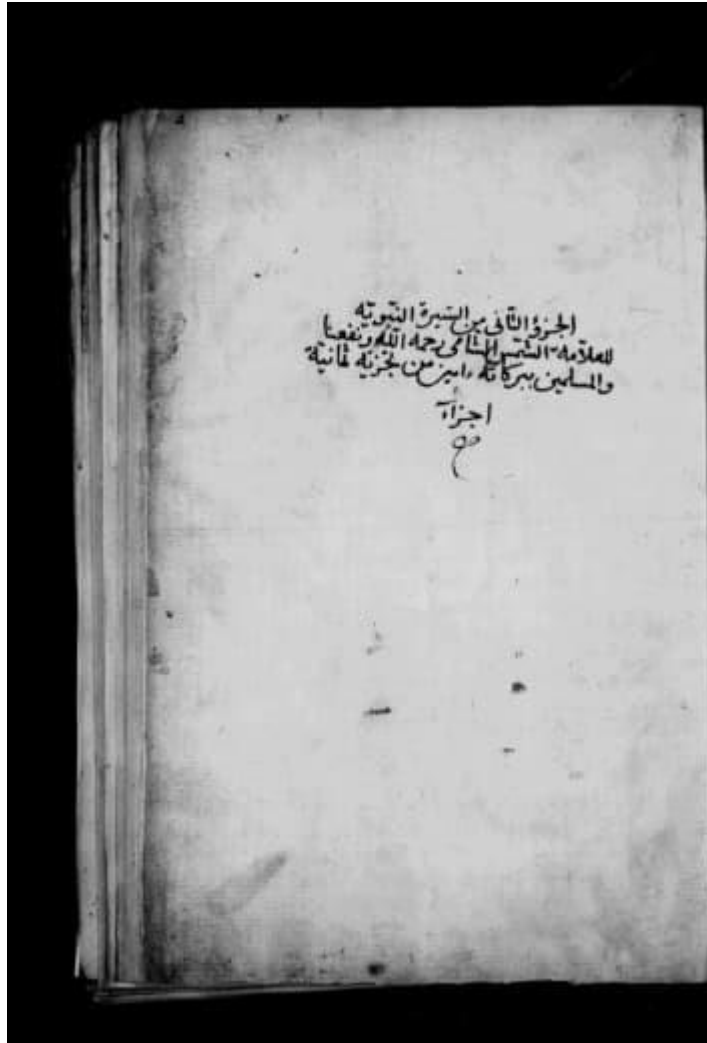 الجزؤ الثانى من السيرة النبويه
للعلامة الشمس الشامى رحمه الله ونفعنا
والمسلمين ببركاته امين من تجزية ثمانية
اجزاء